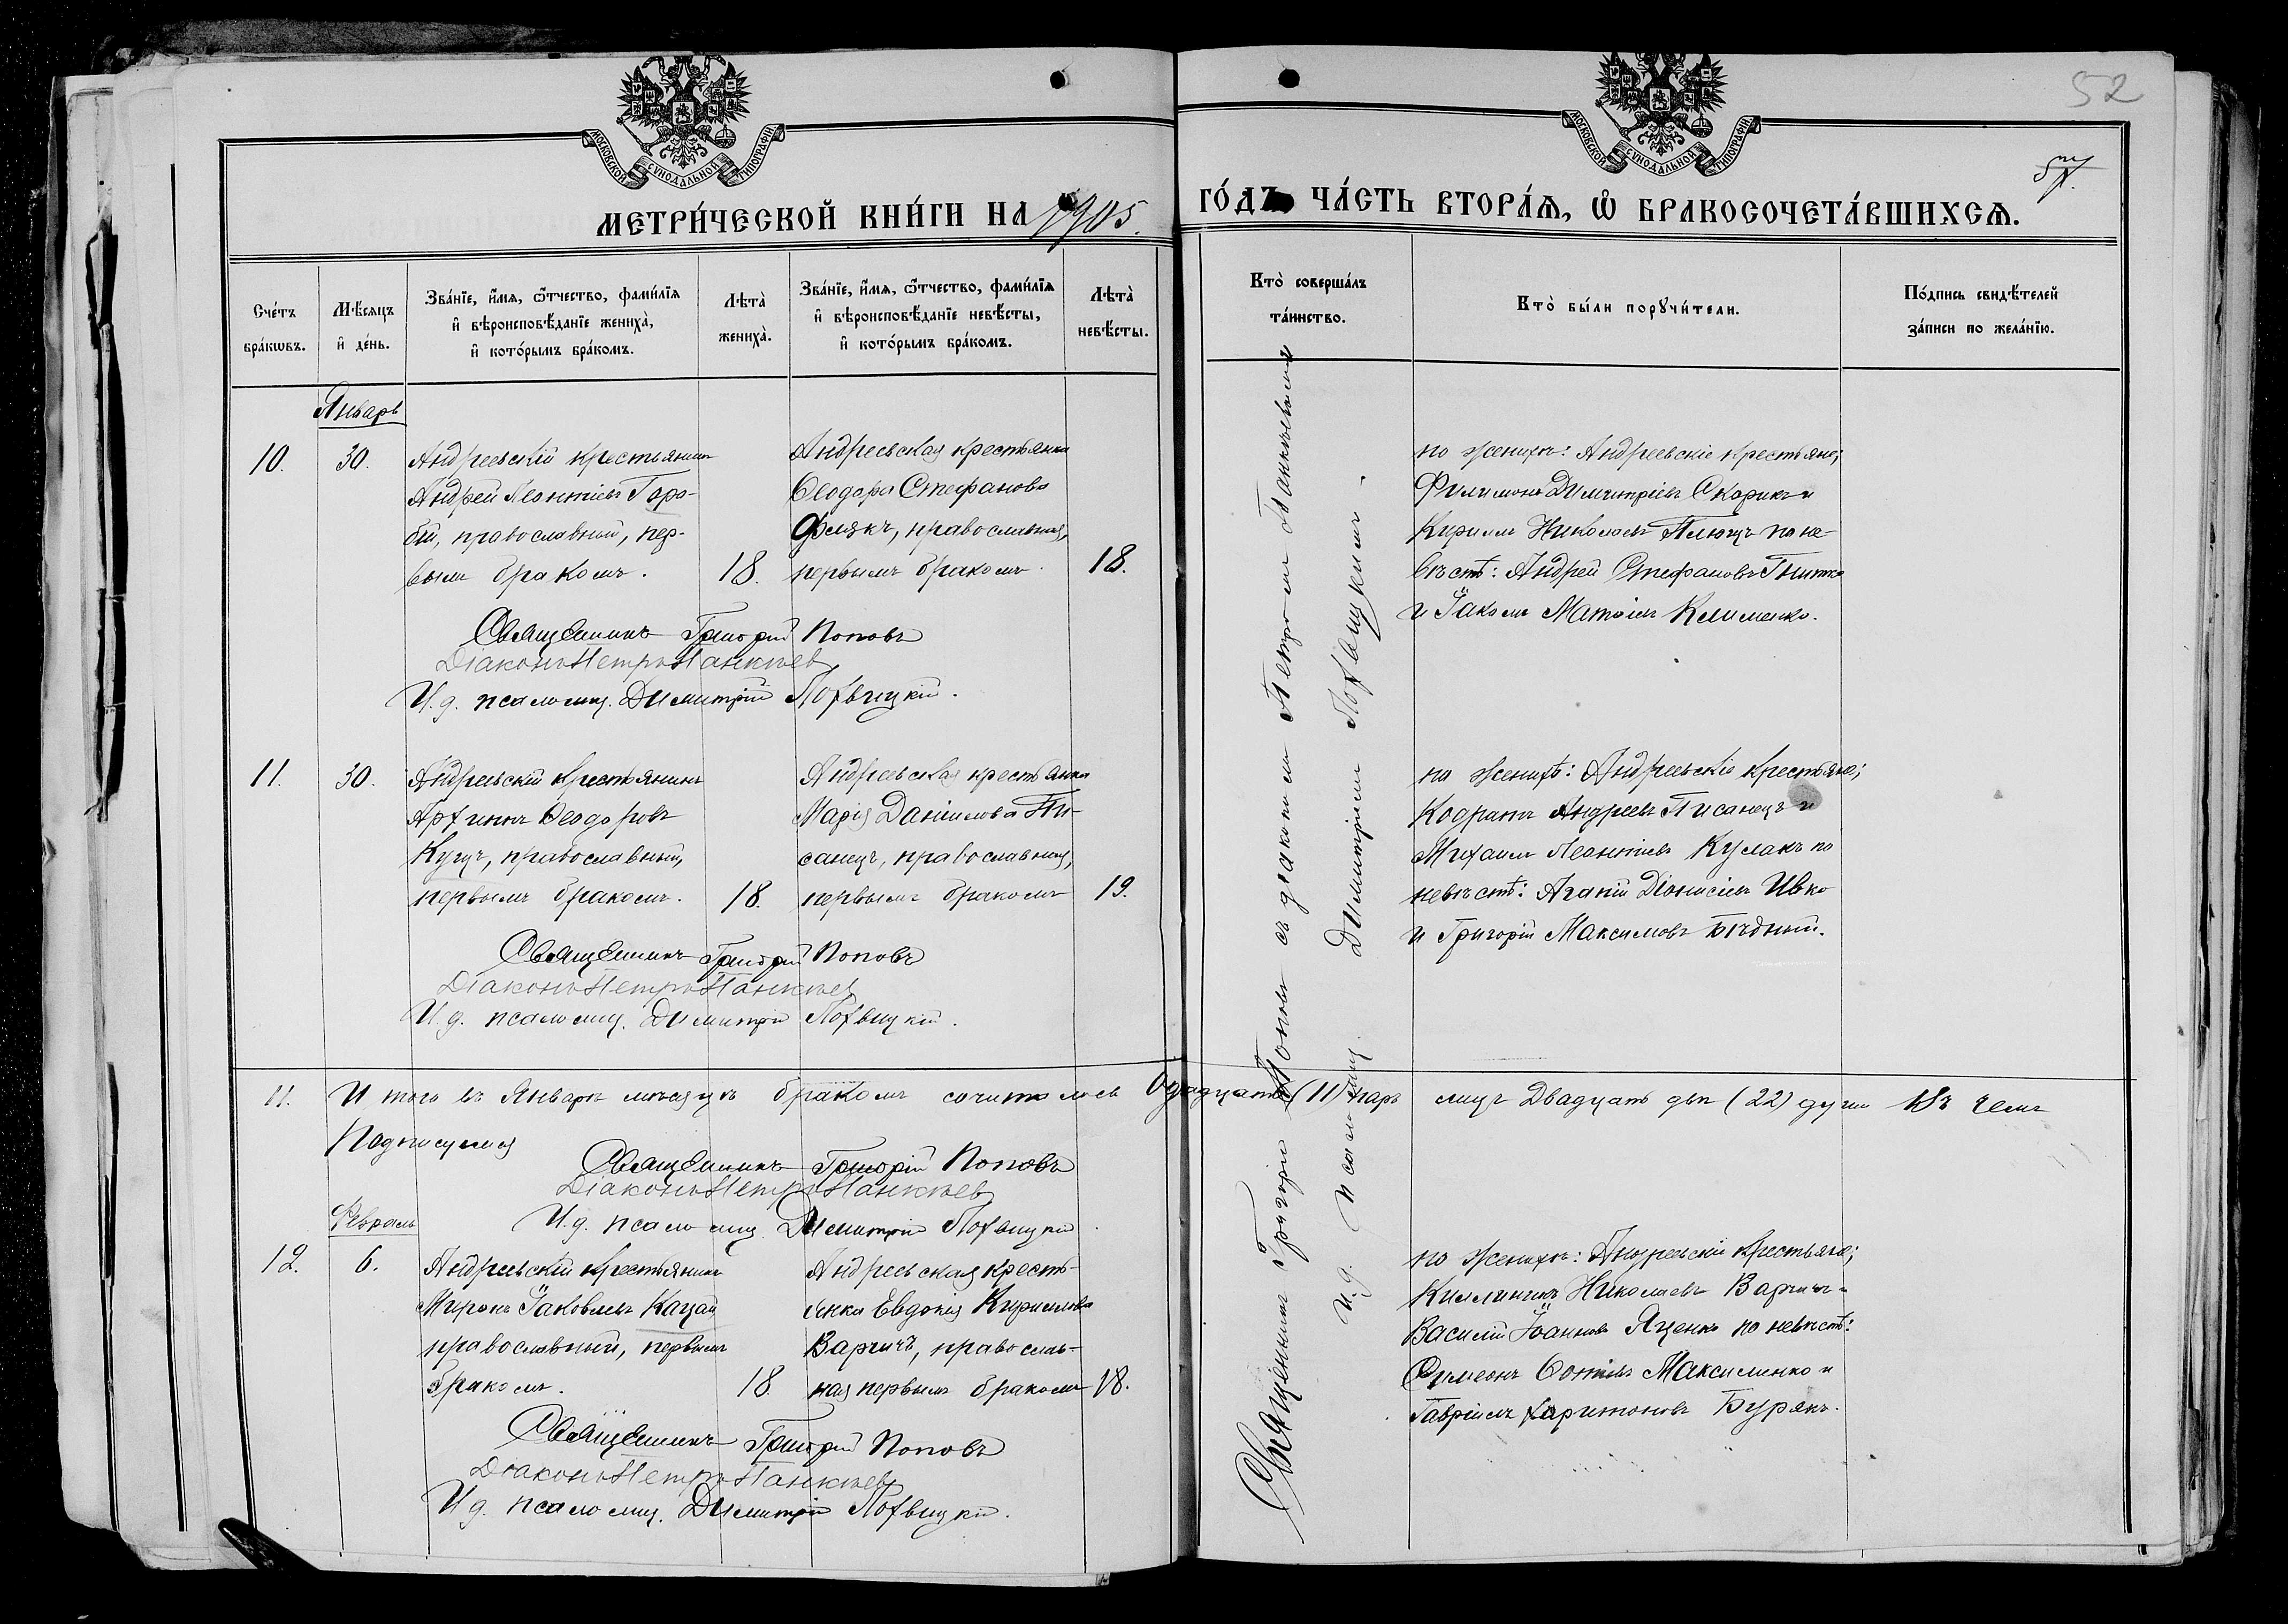 52
57.
МОСКОВСКОЙ СѴНОДАЛЬНОЙ ТИПОГРАФІИ
МОСКОВСКОЙ СѴНОДАЛЬНОЙ ТИПОГРАФІИ
МЕТРИ́ЧЕСКОЙ КНИ́ГИ НА 1905.
ГО́ДЪ ЧА́СТЬ ВТОРА́Ѧ, Ѽ БРАКОСОЧЕТА́ВШИХСѦ.
Сче́тъ
бра́кѡвъ.
Мѣ́сяцъ
и҆ де́нь.
Зва́нїе, и҆́мя, ѻ҆́тчество, фами́лїя
и҆ вѣроисповѣ́данїе жениха̀,
и҆ кото́рымъ бра́комъ.
Лѣта̀
жениха̀.
Зва́нїе, и҆́мя, ѻ҆́тчество, фами́лїя
и҆ вѣроисповѣ́данїе невѣ́сты,
и҆ кото́рымъ бра́комъ.
Лѣта̀
невѣ́сты.
Кто̀ соверша́лъ
та́инство.
Кто̀ бы́ли порꙋчи́тели.
По́дпись свидѣ́телей
за́писи по жела́нїю.
Январь
10.
30.
Андреевскій крестьянинъ
Андрей Леонтіевъ Горо-
бій, православный, пер-
вымъ бракомъ.
18.
Андреевская крестьянка
Ѳеодора Стефанова
православная,
первымъ бракомъ.
18.
по женихѣ: Андреевскіе крестьяне;
Филимонъ Димитріевъ Скорикъ и
Кириллъ Николаевъ Плющъ по не-
вѣстѣ: Андрей Стефановъ
и Іаковъ Клименко.
Священникъ Григорій Поповъ
Діаконъ Петръ Панкѣев
И. д. псаломщ. Димитрій Похвицкій.
11.
30.
Андреевскій крестьянинъ
Ѳеодоровъ
Куцъ, православный,
первымъ бракомъ.
18.
Андреевская крестьянка
Марія Даніилова Пи-
санецъ, православная,
первымъ бракомъ
19.
по женихѣ: Андреевскіе крестьяне;
Кодратъ Андреевъ Писанецъ и
Михаилъ Леонтіевъ Кулакъ по
невѣстѣ: Агапій Діонисіевъ Ивко
и Григорій Максимовъ Бѣдный.
Священникъ Григорій Поповъ
Діаконъ Петръ Панкѣев
И. д. псаломщ. Димитрій Похвицкій.
11. Итого въ Январѣ мѣсяцѣ бракомъ сочиталось Одинадцать (11) паръ лицъ Двадцать двѣ (22) души Въ чемъ
Подписуемся
Священникъ Григорій Поповъ
Діаконъ Петръ Панкѣев
И. д. псаломщ. Димитрій Похвицкій
Февраль
12.
6.
Андреевскій крестьянинъ
Миронъ Іаковлевъ Кацай
православный, первымъ
бракомъ.
18.
Андреевская кресть-
янка Евдокія Кириллова
Варичъ, православ-
ная первымъ бракомъ
18.
по женихѣ: Андреевскіе крестьяне;
Николаевъ Варичъ и
Василій Іоанновъ Яценко по невѣстѣ:
Симеонъ Максименко и
Гавріилъ Харитоновъ Бурякъ.
Священникъ Григорій Поповъ
Діаконъ Петръ Панкѣев
И. д. псаломщ. Димитрій Похвицкій.
Священникъ Григорій Поповъ съ діакономъ Петромъ Панкѣевымъ
И. д. псаломщ. Димитріемъ Похвицкимъ.